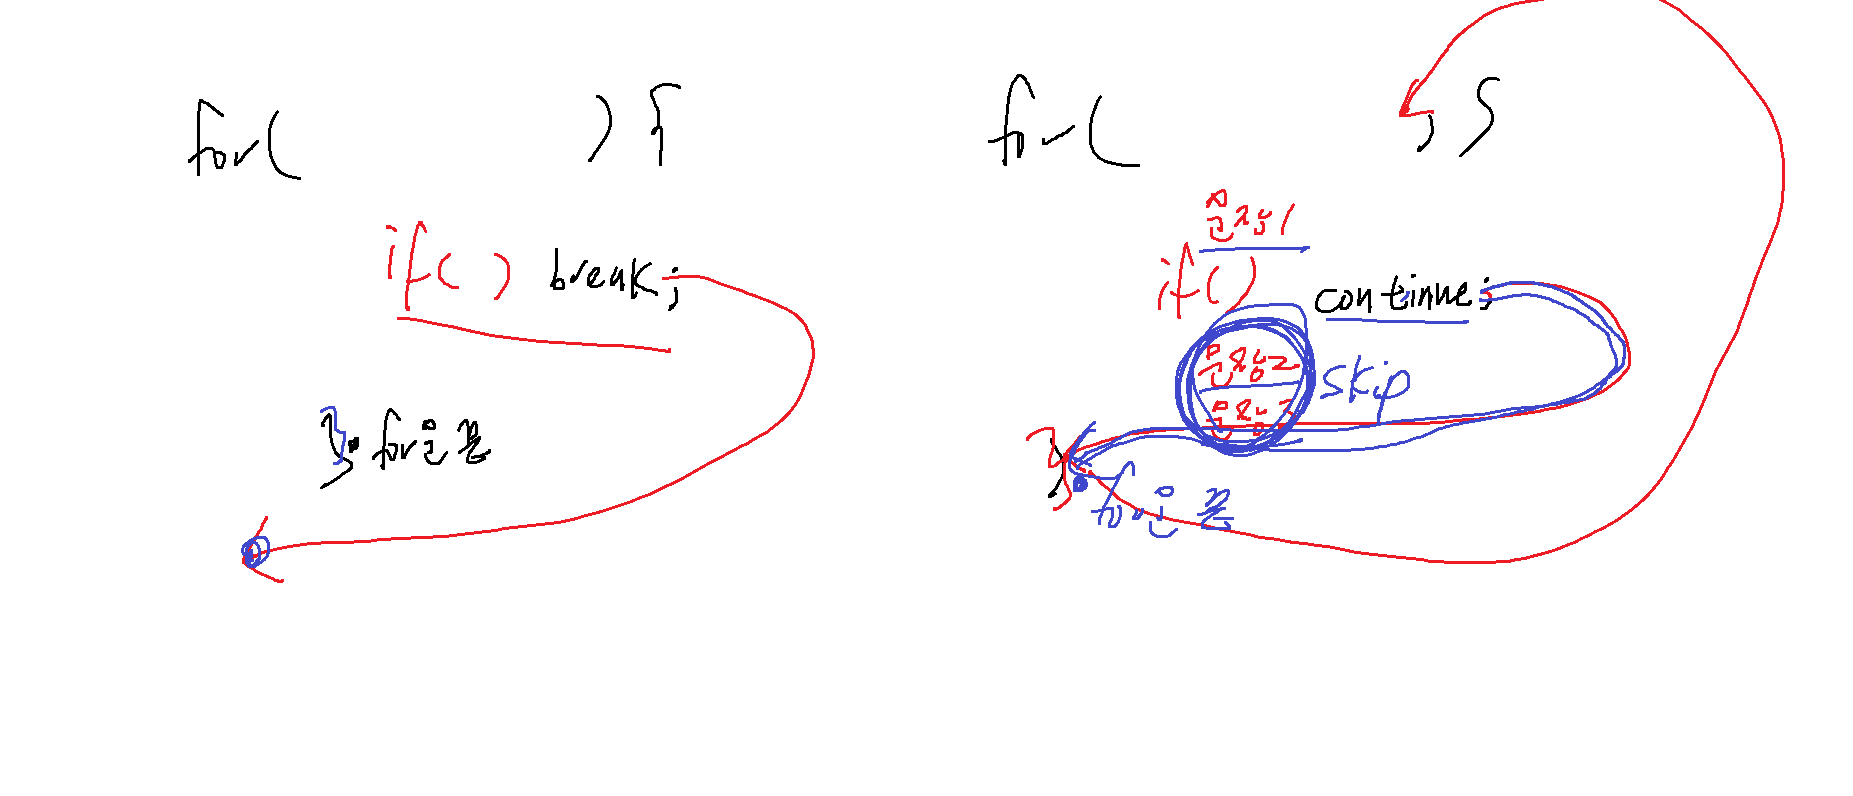 for(          ) {
if( ) break;
}. for운 끝
for(          ; }
문장1
if( )
continue;
문장2
skip
문장3
}
for문 끝